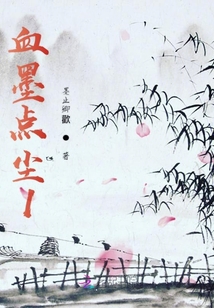 血墨点尘
墨止卿歡●著